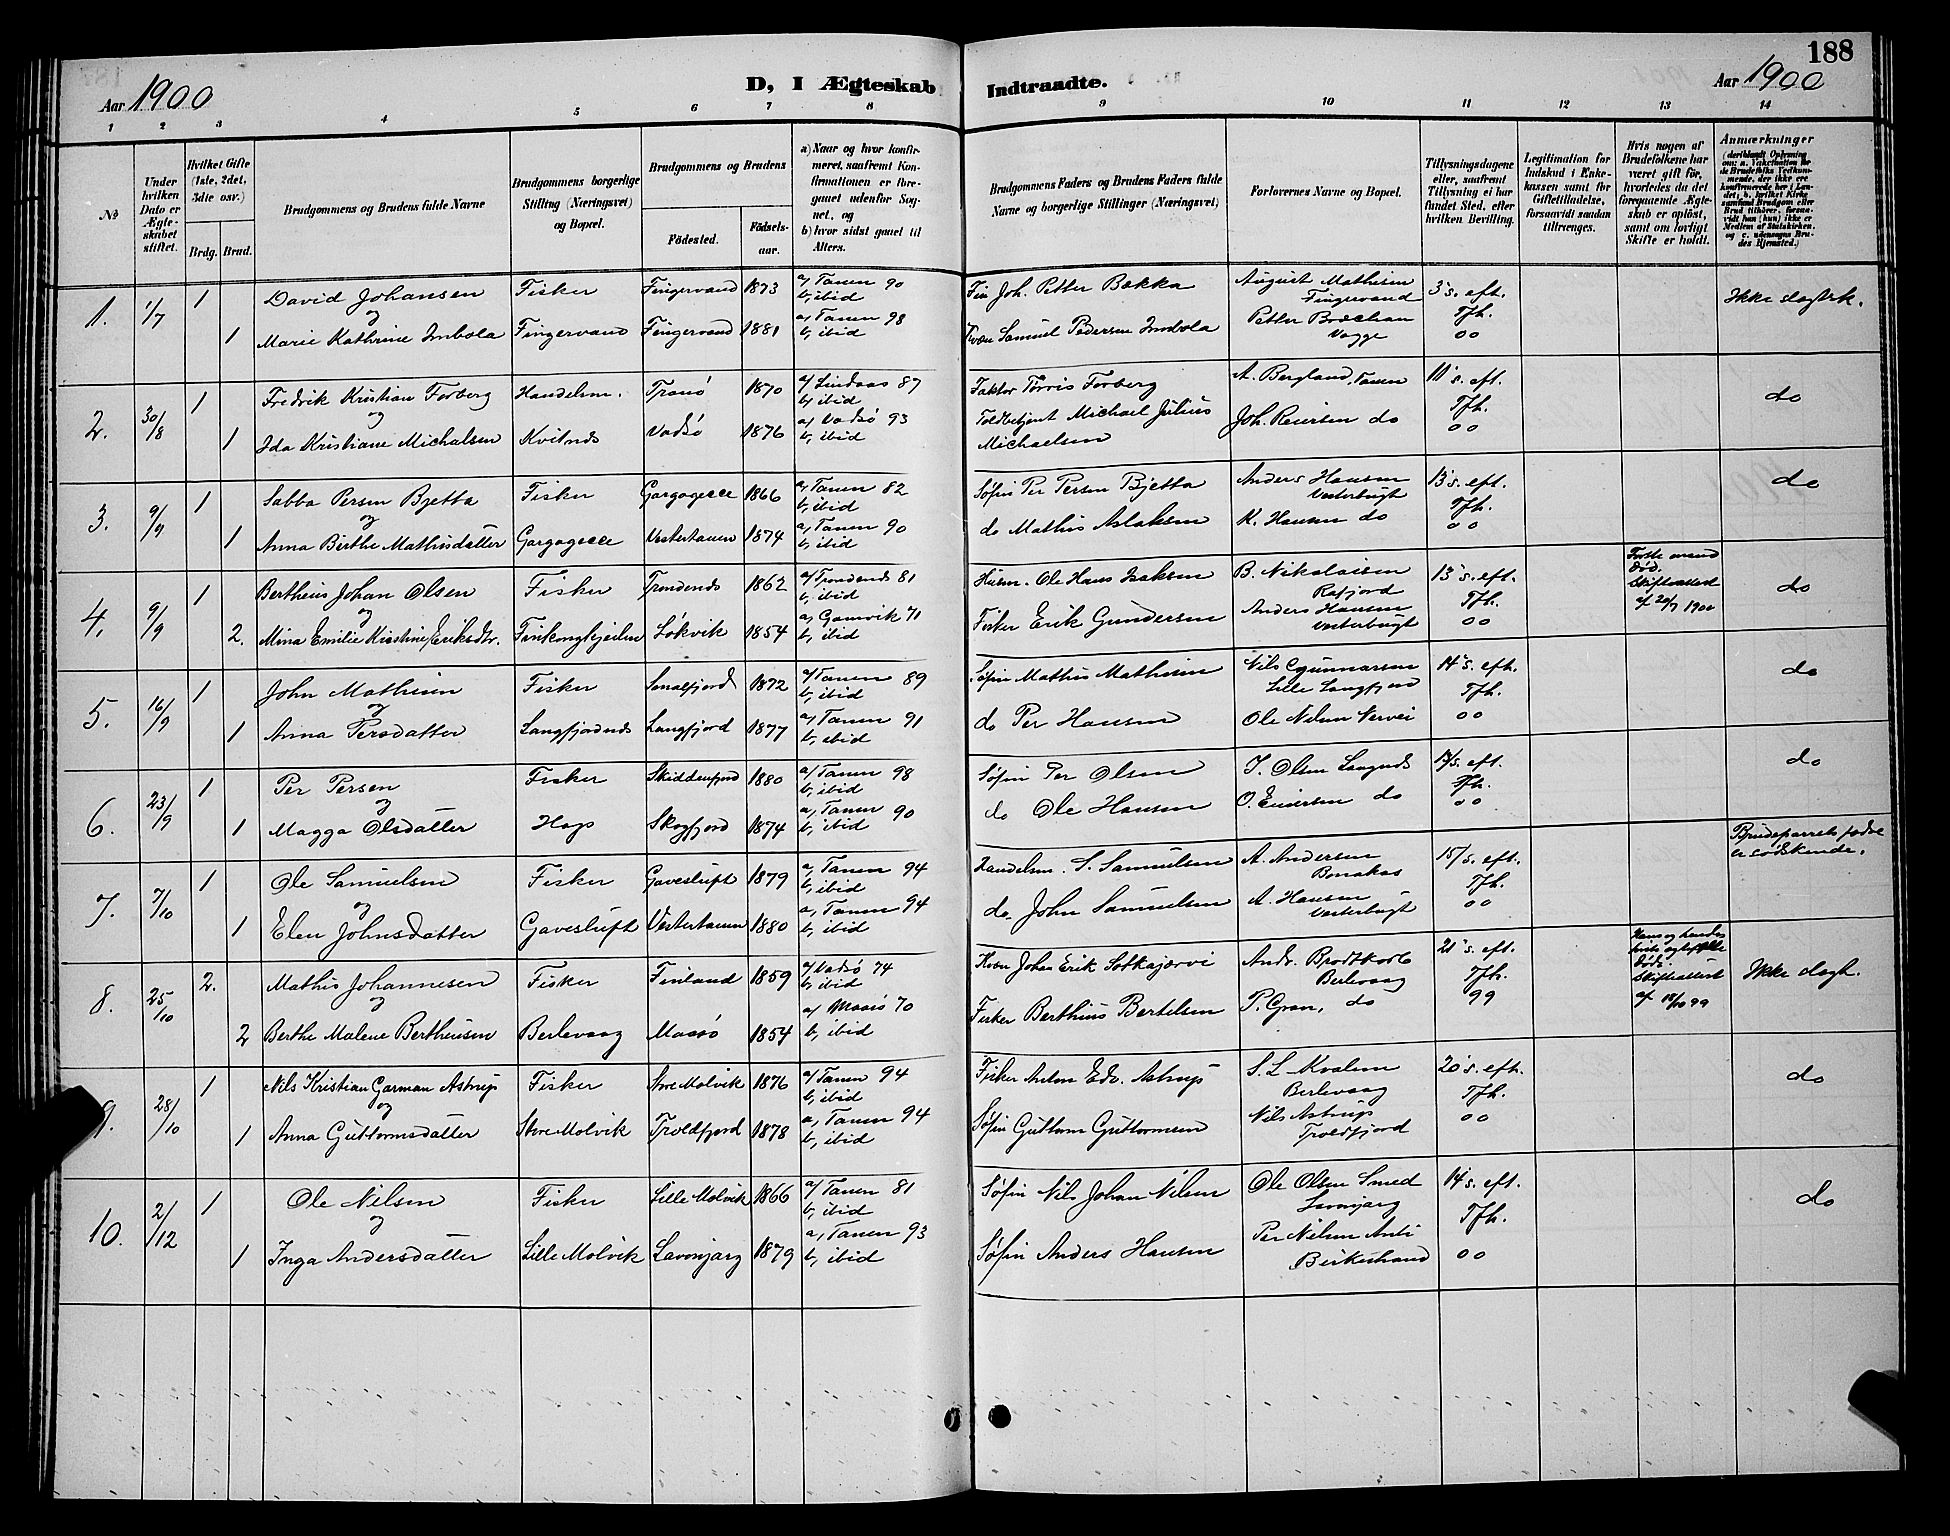 188
Aar 1900
D, I Ægteskab Indtraadte.
Aar 1900
1 2 3 4 5 6 7 8 9 10 11 12 13 14
№
Under hvilken Dato er Ægteskabet stiftet.
Hvilket Gifte (1ste, 2det, 3die osv.)
Brdg. Brud.
Brudgommens og Brudens fulde Navne
Brudgommens borgerlige Stilling (Næringsvei) og Bopæl.
Brudgommens og Brudens
Fødested.
Fødselsaar.
a) Naar og hvor konfirmeret, saafremt Konfirmationen er foregaaet udenfor Sognet, og
b) hvor sidst gaaet til Alters.
Brudgommens Faders og Brudens Faders fulde Navne og borgerlige Stillinger (Næringsvei)
Forlovernes Navne og Bopæl.
Tillysningsdagene eller, saafremt Tillysning ei har fundet Sted, efter hvilken Bevilling.
Legitimation for Indskud i Enkekassen samt for Giftetilladelse, forsaavidt saadan tiltrænges.
Hvis nogen af Brudefolkene har været gift før, hvorledes da det foregaaende Ægteskab er opløst, samt om lovligt Skifte er holdt.
Anmærkninger
(deriblandt Oplysning om: a. Vakcination for de Brudefolks Vedkommende, der ikke ere konfirmerede her i Landet, b. hvilket Kirkesamfund Brudgom eller Brud tilhører, forsaavidt han (hun) ikke er Medlem af Statskirken, og c. udensogns Brudes Hjemsted.)
1. 1/7 1 David Johansen Fisker Fingervand 1873 a/ Tanen 90 b, ibid Fin Joh. Petter Bakka August Mathisen Fingervand 3 s. eft. Tfh. 00 Ikke slegtsk.
og
1 Marie Kathrine Imbola Fingervand Fingervand 1881 a/ Tanen 98 b, ibid Kvæn Samuel Pedersen Imbola Petter Brækan Vagge
2. 30/8 1 Fredrik Kristian Forberg Handelsm. Tranø 1870 a/ Lindaas 87 b, ibid Faktor Tørris Forberg A. Bergland, Tanen 11 s. eft. Tfh. 00 do
og
1 Ida Kristiane Michalsen Kvitnes Vadsø 1876 a/ Vadsø 93 b, ibid Toldbetjent Michael Julius Michaelsen Joh. Reiersen do
3. 9/9 1 Sabba Persen Bjetta Fisker Gargogecce 1866 a, Tanen 82 b, ibid Søfin Per Persen Bjetta Anders Hansen Vesterbugt 13 s. eft. Tfh. 00 do
og
1 Anna Berthe Mathisdatter Gargogecce Vestertanen 1874 a, Tanen 90 b, ibid do Mathis Aslaksen K. Hansen do
4. 9/9 1 Bertheus Johan Olsen Fisker Trondenes 1862 a/ Trondenes 81 b, ibid Husm. Ole Hans Isaksen B. Nikolaisen Rafjord 13 s. eft. Tfh. 00 Første mand død. Skifteattest af 20/7 1900 do
og
2. Mina Emilie Kirstine Eriksdtr. Finkongkjeilen Løkvik 1854 a, Gamvik 71 b, ibid Fisker Erik Gundersen Anders Hansen Vesterbugt
5. 16/9 1 John Mathisen Fisker Smalfjord 1872 a/ Tanen 89 b, ibid Søfin Mathis Mathisen Nils Gunnarsen Lille Langfjord 14 s. eft. Tfh. 00 do
og
1 Anna Persdatter Langfjordnes Langfjord 1877 a/ Tanen 91 b, ibid do Per Hansen Ole Nilsen Vervei
6. 23/9 1 Per Persen Fisker Skiddenfjord 1880 a/ Tanen 98 b, ibid Søfin Per Olsen I. Olsen Langnes 17/s. eft. Tfh. 00 do
og
1 Magga Olsdatter Hops Skogfjord 1874 a, Tanen 90 b, ibid do Ole Hansen O. Einersen do
7. 7/10 1 Ole Samuelsen Fisker Gavesluft 1879 a, Tanen 94 b, ibid Handelsm. S. Samuelsen A. Andersen Bonakas 15/s. eft. Tfh. 00 Brudeparrets fædre er sødskende.
og
1 Elen Johnsdatter Gavesluft Vestertanen 1880 a, Tanen 94 b, ibid do. John Samuelsen A. Hansen Vesterbugt
8. 25/10 2. Mathis Johannesen Fisker Finland 1859 a/ Vadsø 74 b, ibid Kvæn Johan Erik Sotkajærvi Andr. Brodtkorb Berlevaag 21 s. eft. Tfh. 99 Hans og hendes første ægtefælle død. Skifteattest af 18/10 99 Ikke slegt.
og
2 Berthe Malene Bertheusen Berlevaag Maasø 1854 a/ Maasø 70 b, ibid Fisker Berthius Bertelsen P. Gran, do
9. 28/10 1 Nils Kristian Garman Astrup Fisker Store Molvik 1876 a/ Tanen 94 b, ibid Fisker Anton Edv. Astrup S. L. Kvalsen Berlevaag 20 s. eft. Tfh. 00 do
og
1 Anna Guttormsdatter Store Molvik Troldfjord 1878 a, Tanen 94 b, ibid Søfin Guttorm Guttormsen Nils Astrup Troldfjord
10. 2/12 1 Ole Nilsen Fisker Lille Molvik 1866 a/ Tanen 81 b, ibid Søfin Nils Johan Nilsen Ole Olsen Smed Lavonjarg 14 s. eft. Tfh. 00 do
og
1 Inga Andersdatter Lille Molvik Lavonjarg 1879 a, Tanen 93 b, ibid Søfin Anders Hansen Per Nilsen Anti Birkestrand